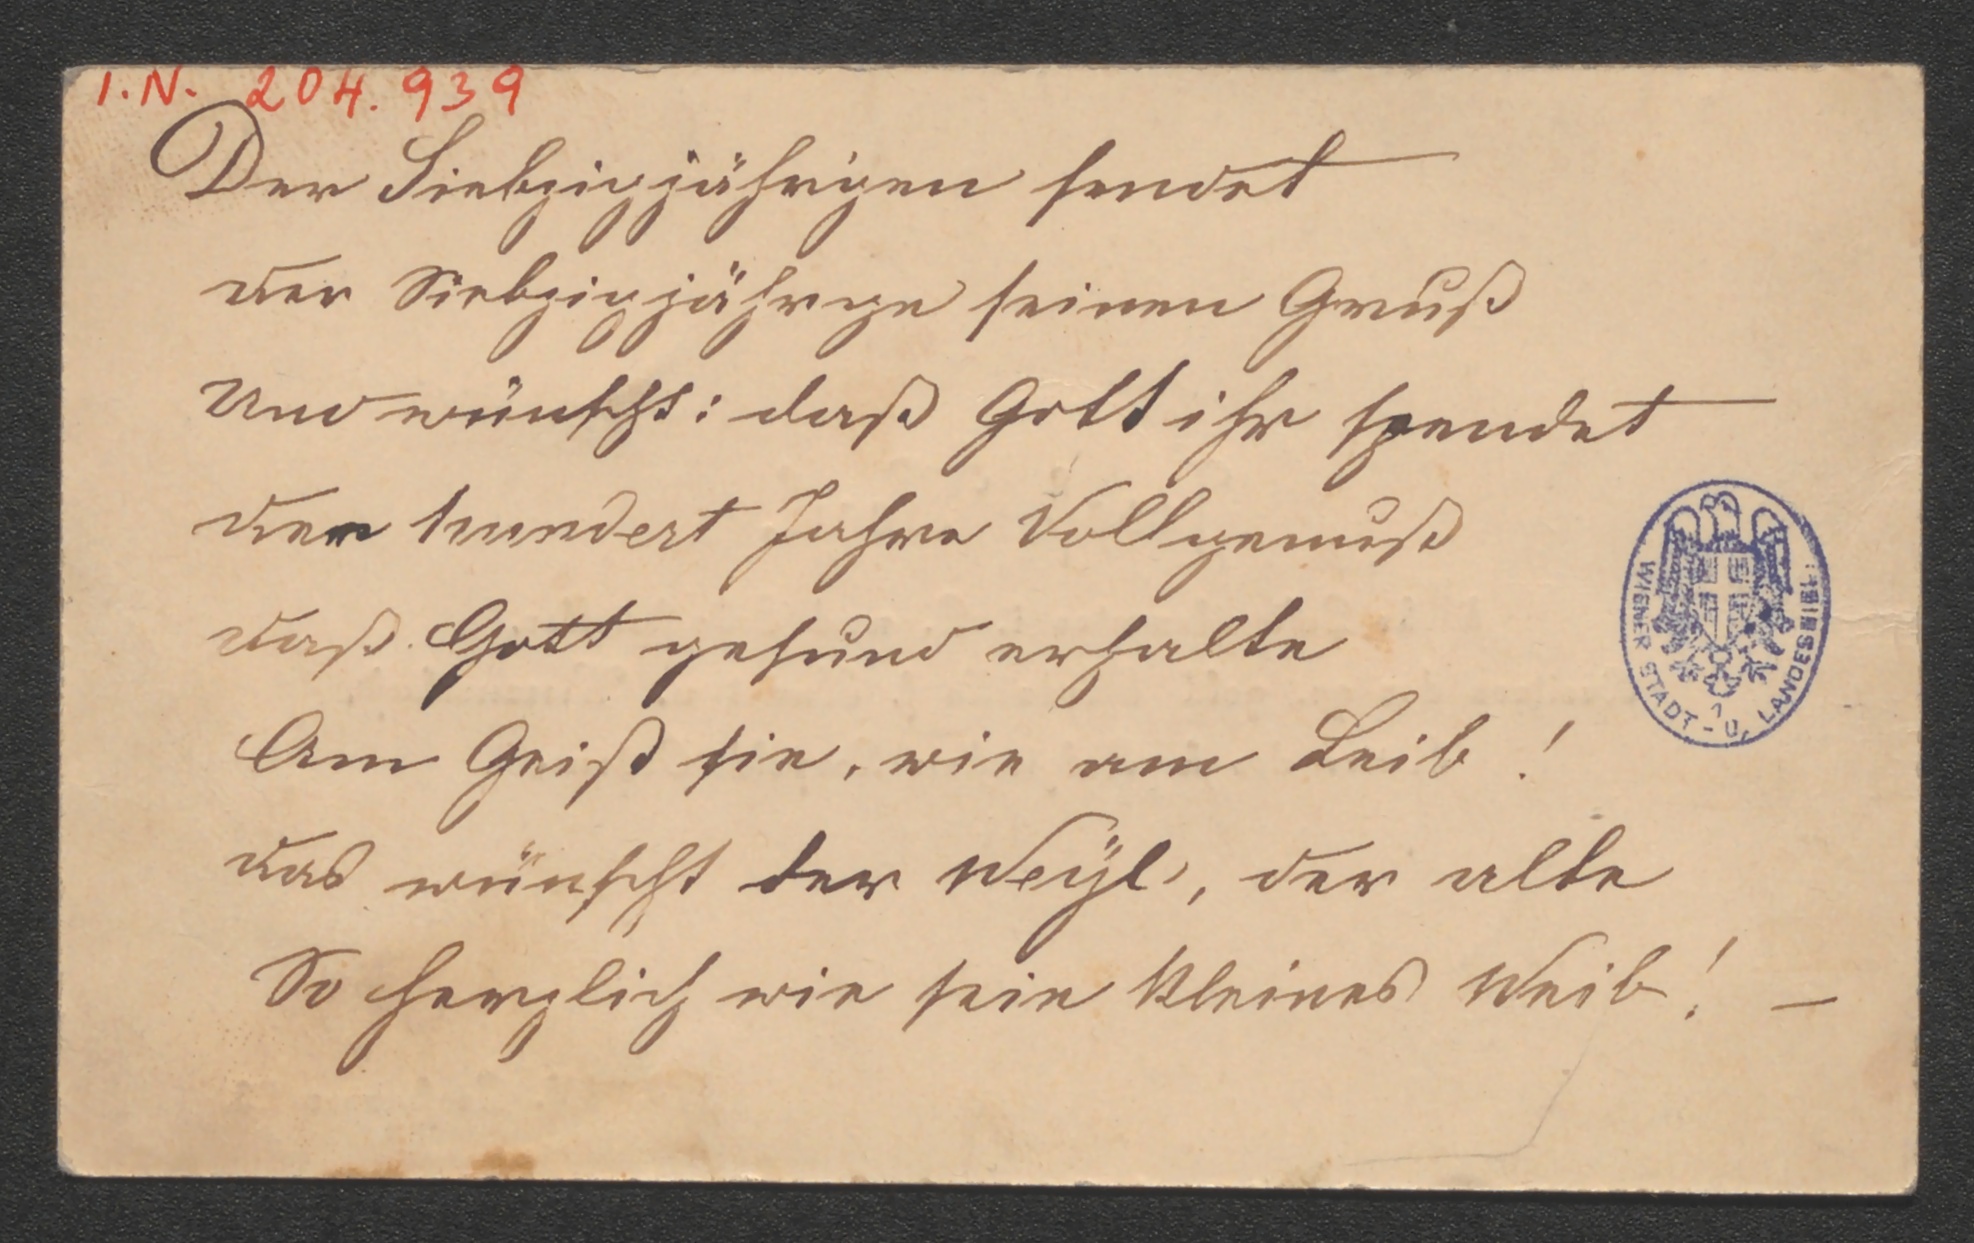 I.N. 204.939
Der Siebzigjährigen sendet
der Siebzigjährge seinen Gruß
Und wünscht: daß Gott ihr spendet
der hundert Jahre Vollgenuß
daß Gott gesund erhalte
Am Geist sie, wie am Leib!
das wünscht der Weÿl, der alte
So herzlich wie sein kleines Weib! —
WIENER STADT - U. LANDESBIBL.